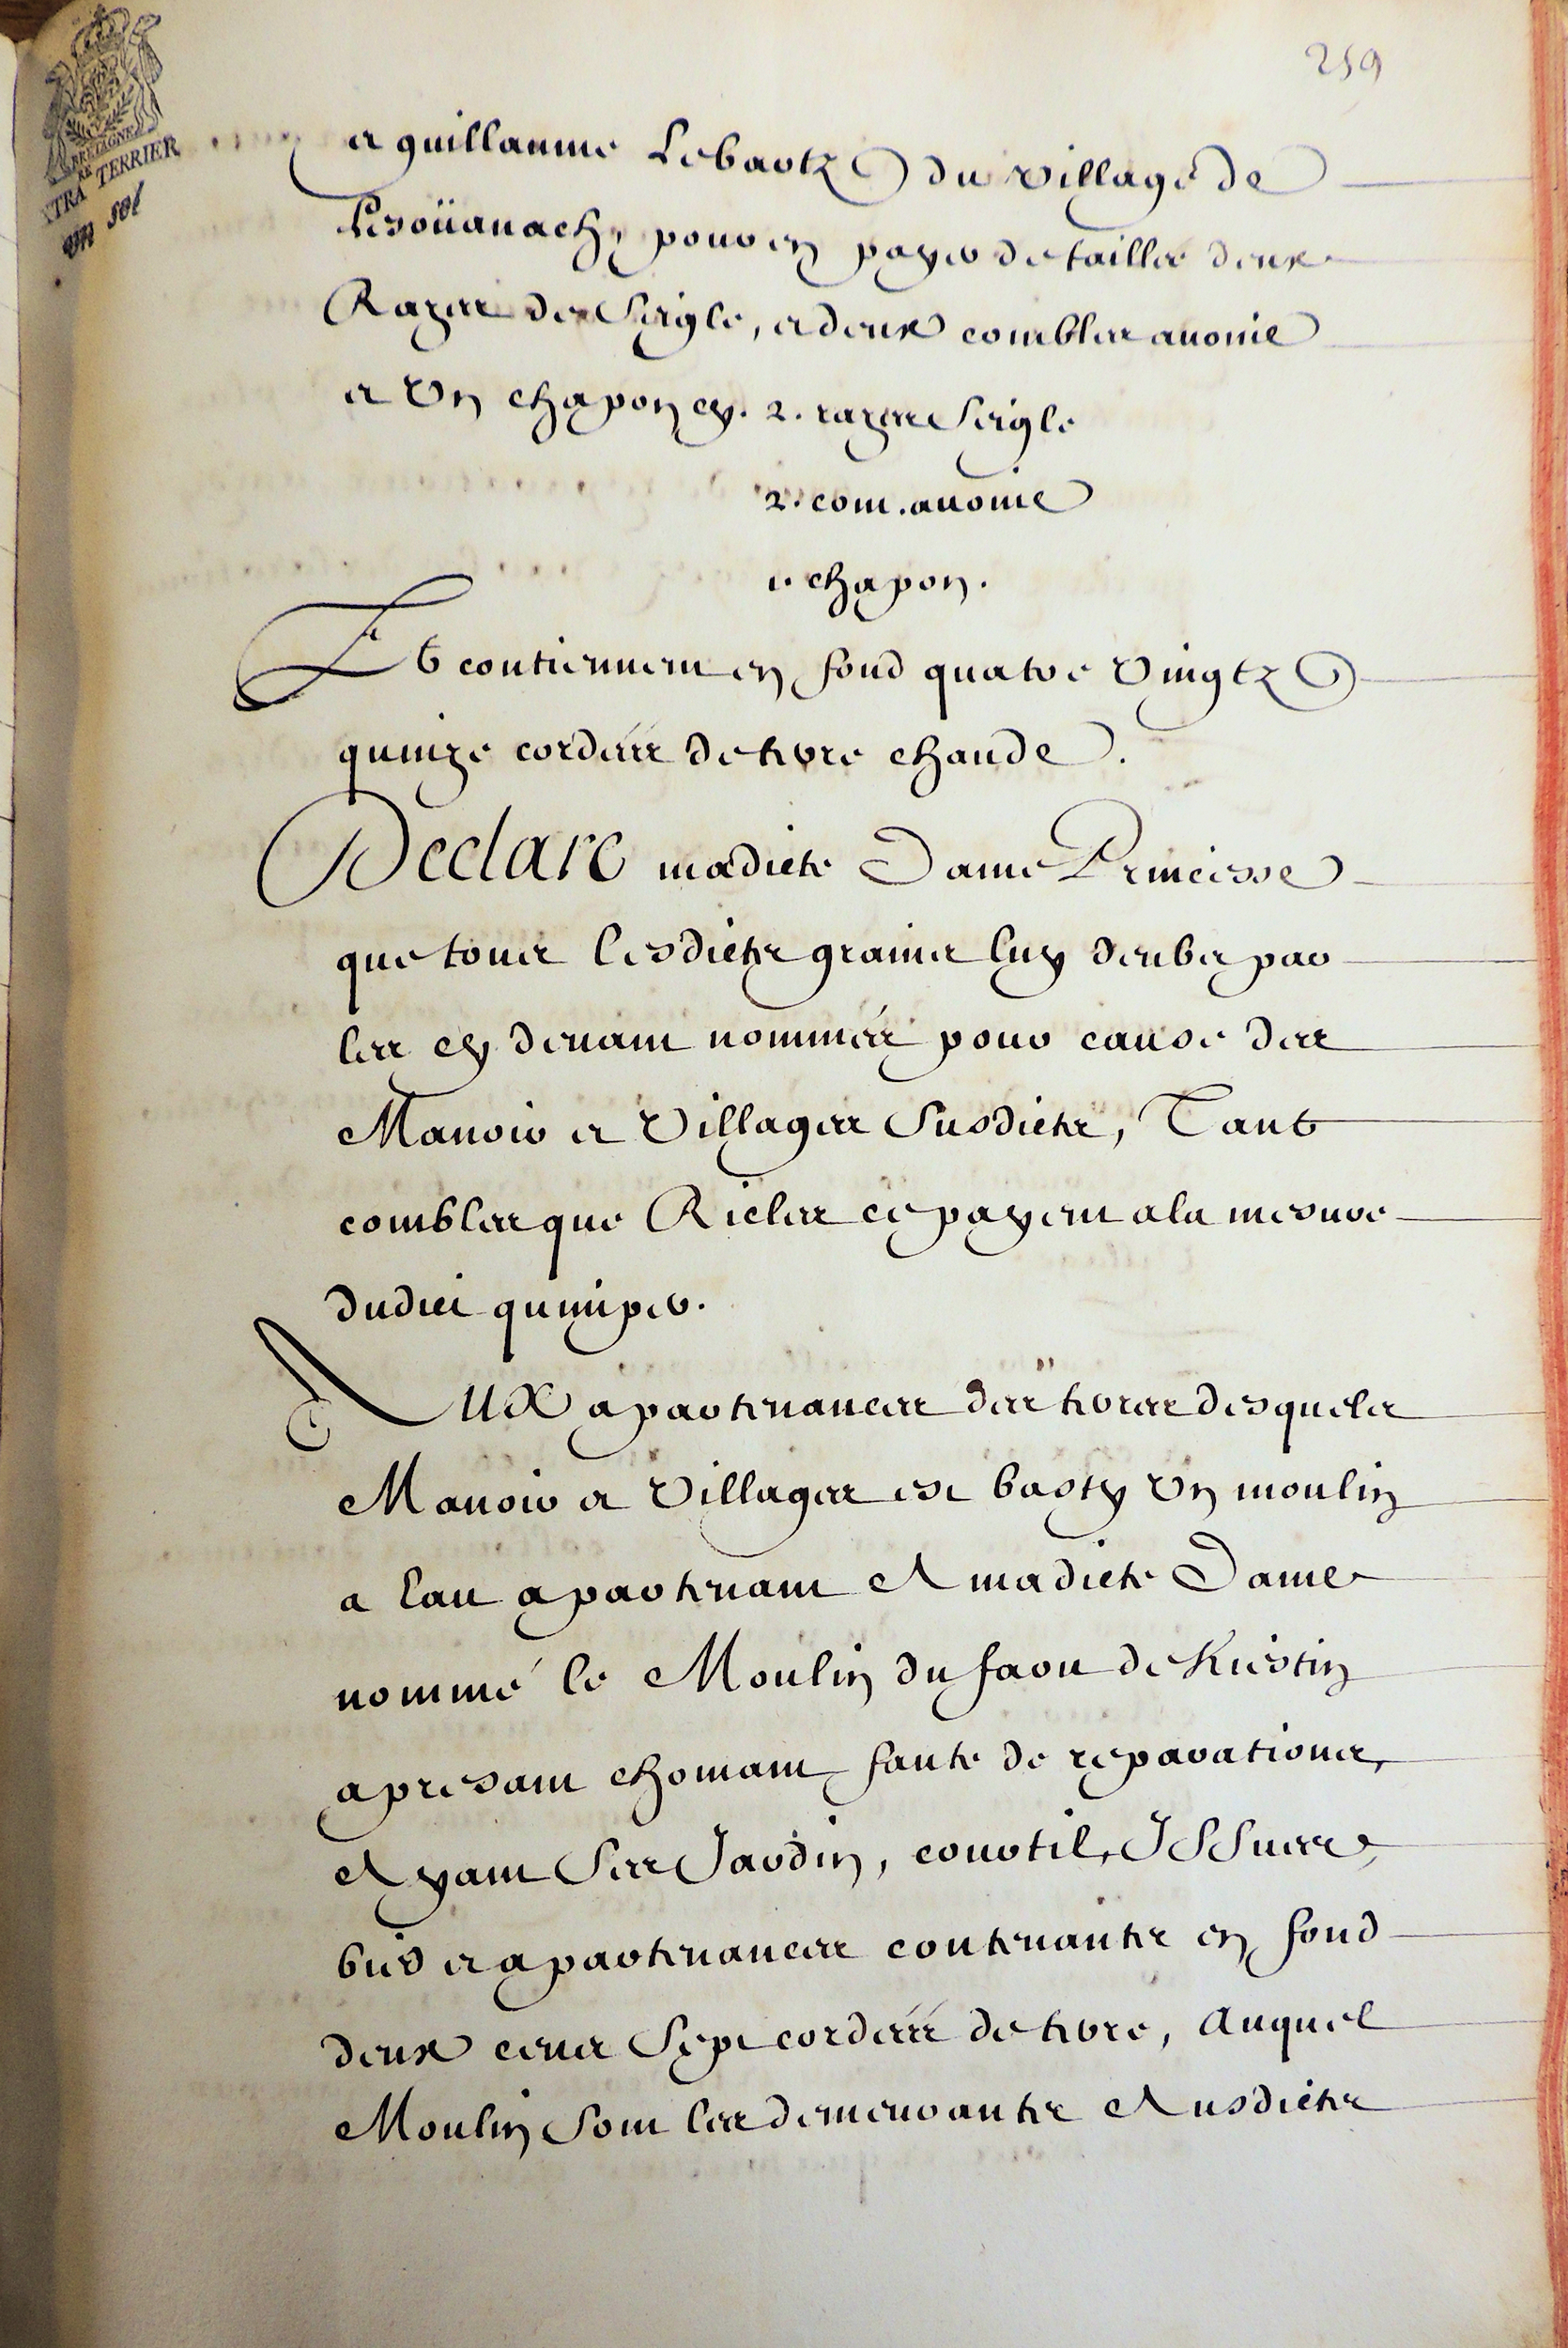 259
BRETAGNE
XTRA TERRIER
un sol
et guillaume Lebartz du village de
Lesoüanach, pour en payer de tailles deux
Razes de Seigle, et deux combles auoine
et Vn chapon cy. 2. razes Seigle
2. com. auoine
1. chapon.
Et contiennent en fond quatre Vingtz
quinze cordées de terre chaude.
Declare madicte Dame Princesse
que tous lesdictz grains luy deubz par
les cy deuant nommés pour cause des
Manoir et Villages Susdictz, Tant
combles que Ricles ce payent a la mesure
dudict quimper.
Aux apartenances des terres desquels
Manoir et Villages est basty Vn moulin
a Eau apartenant A madicte Dame
nommé le Moulin du faou de Kiestin
apresant chomant faute de reparations,
Ayant Ses Jardin, courtil, ISSues,
bies et apartenances contenantz en fond
deux cens Sept cordées de terre, Auquel
Moulin Sont les demeurantz Ausdictz